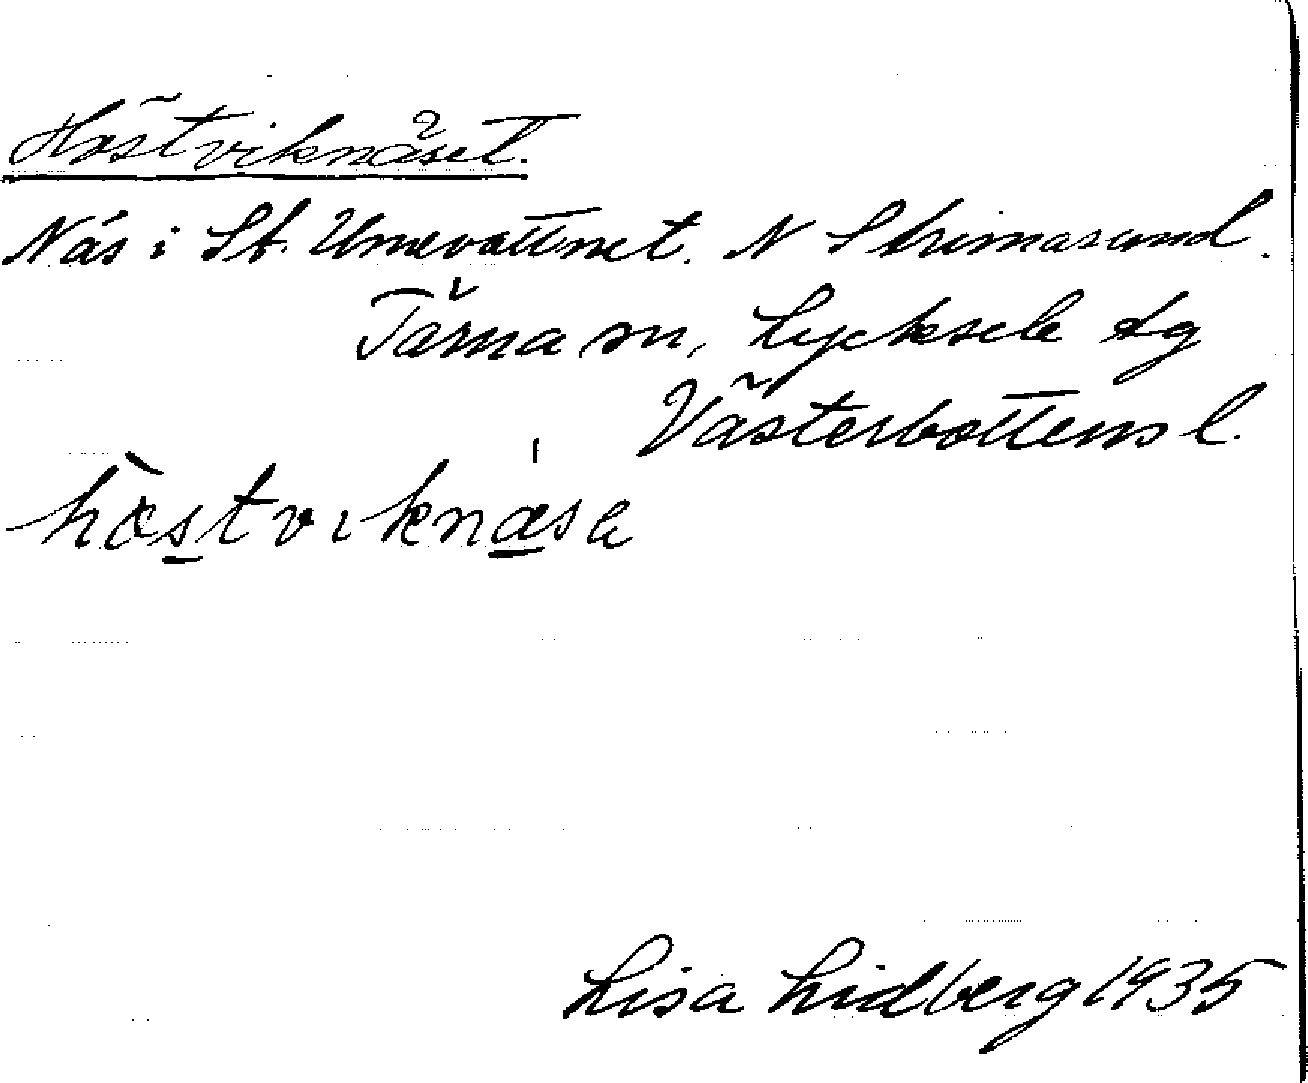 Höstviknäset.
Näs i St. Umevattnet. N Strimasund.
Tärna sn, Lycksele lg
Västerbottens l.
hòstviknása
Lisa Lidberg 1935